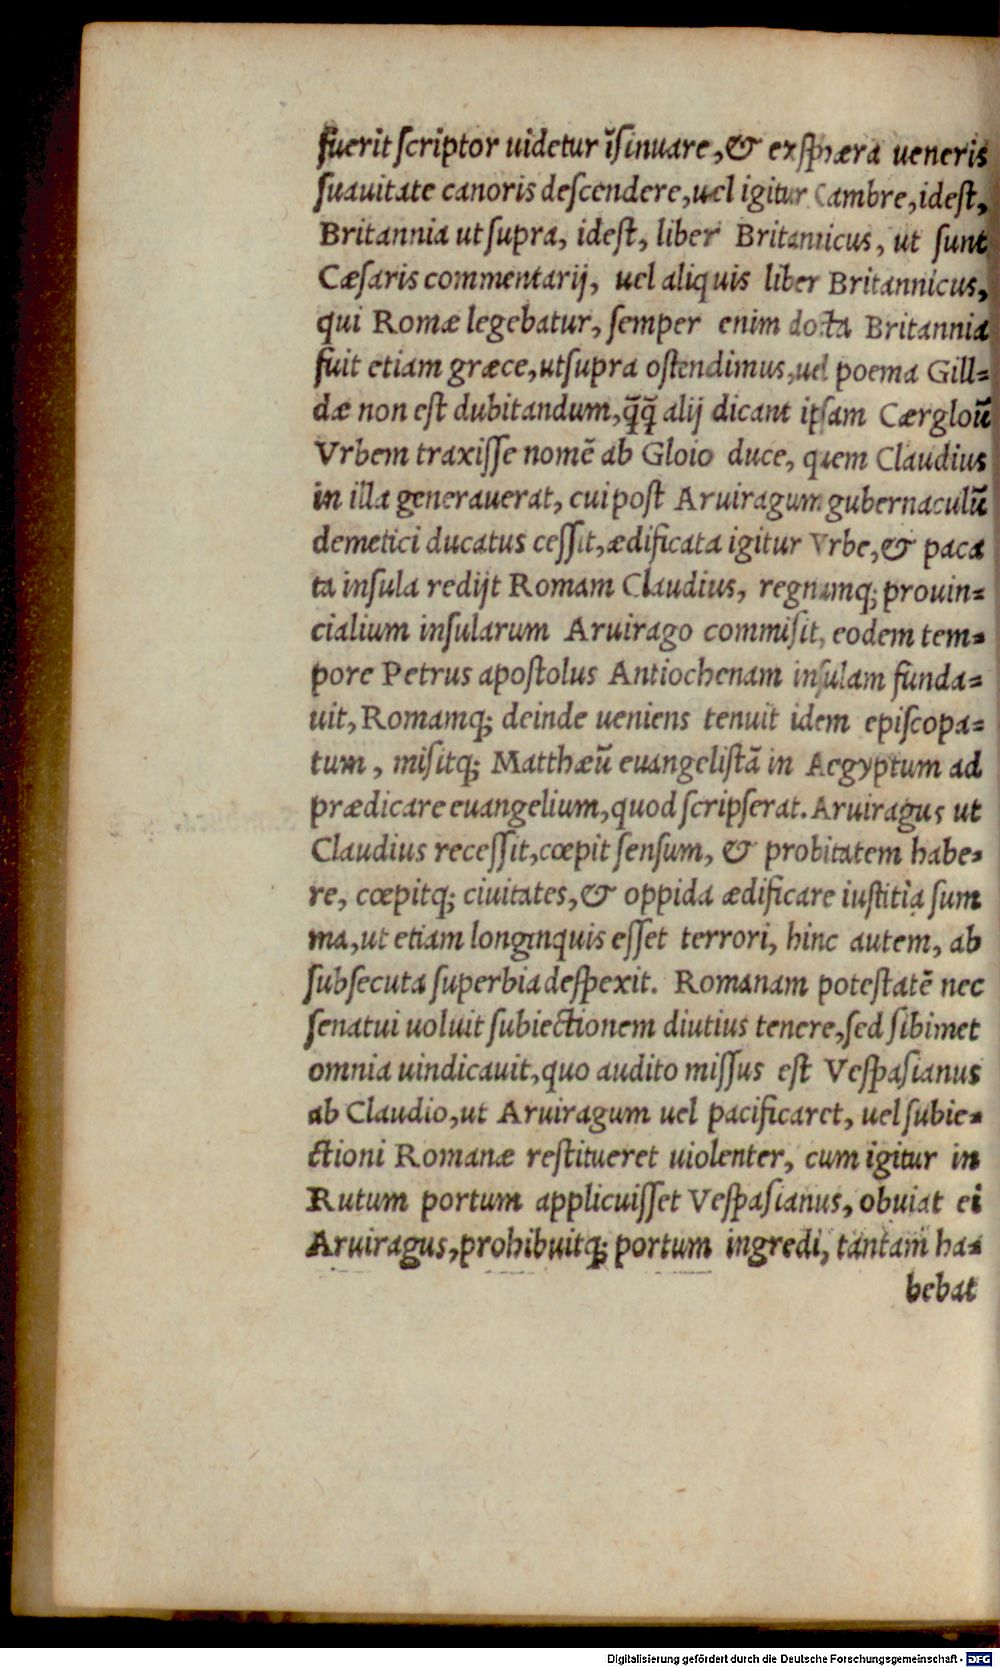 fuerit scriptor uidetur ĩsinuare, & ex sphæra ueneris
suauitate canoris descendere, uel igitur Cambre, idest,
Britannia ut supra, idest, liber Britannicus, ut sunt
Cæsaris commentarij, uel aliquis liber Britannicus,
qui Romæ legebatur, semper enim docta Britannia
fuit etiam græce, utsupra ostendimus, uel poema Gill=
dæ non est dubitandum, q̃q̃ alij dicant ipsam Cærgloũ
Vrbem traxisse nomẽ ab Gloio duce, quem Claudius
in illa generauerat, cui post Aruiragum gubernaculũ
demetici ducatus cessit, ædificata igitur Vrbe, & paca
ta insula redijt Romam Claudius, regnumq; prouin=
cialium insularum Aruirago commisit, eodem tem=
pore Petrus apostolus Antiochenam insulam funda=
uit, Romamq; deinde ueniens tenuit idem episcopa=
tum, misitq; Matthæũ euangelistã in Aegyptum ad
prædicare euangelium, quod scripserat. Aruiragus ut
Claudius recessit, cœpit sensum, & probitatem habe=
re, cœpitq; ciuitates, & oppida ædificare iustitia sum
ma, ut etiam longinquis esset terrori, hinc autem, ab
subsecuta superbia despexit. Romanam potestatẽ nec
senatui uoluit subiectionem diutius tenere, sed sibimet
omnia uindicauit, quo audito missus est Vespasianus
ab Claudio, ut Aruiragum uel pacificaret, uel subie=
ctioni Romanæ restitueret uiolenter, cum igitur in
Rutum portum applicuisset Vespasianus, obuiat ei
Aruiragus, prohibuitq; portum ingredi, tantam ha=
bebat
Digitalisierung gefördert durch die Deutsche Forschungsgemeinschaft - DFG